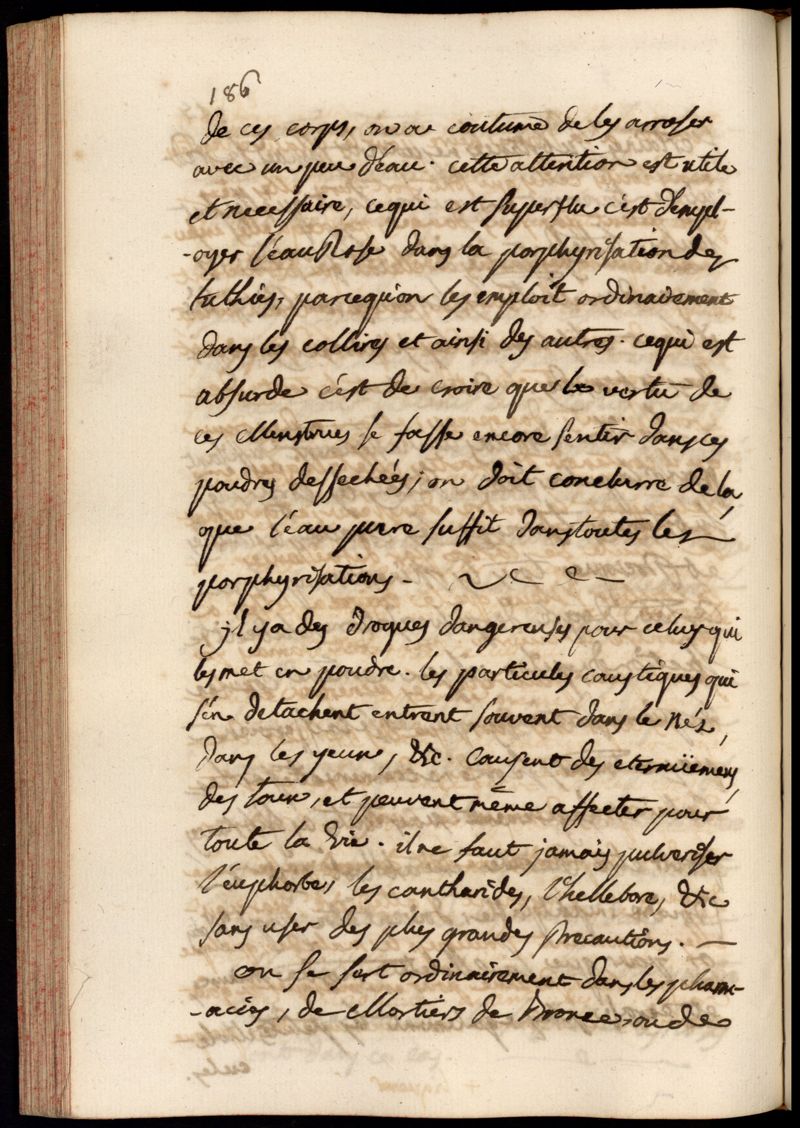 186
de ces corps, on a coutume de les arroser
avec un peu d'eau. cette attention est utile
et necessaire, ce qui est superflu c'est d'empl-
-oyer l'eau Rose dans la porphyrisation des
tuthies, parcequ'on les emploit ordinairement
dans les collires et ainsi des autres. ce qui est
absurde c'est de croire que la vertu de
ces Menstrues se fasse encore sentir dans ces
poudres dessechées; on doit conclurre de la,
que l'eau pure suffit dans toutes les
porphyrisations -
jl y a des droques dangereuses pour celuy qui
les met en poudre. les particules caustiques qui
s'en detachent entrent souvent dans le Néz,
dans les yeux, &c. causent des eternüemens,
des toux, et peuvent même affecter pour
toute la vie. il ne faut jamais pulveriser
l'euphorbe, les cantharides, l'hellebore, &c
sans user des plus grandes precautions. -
on se sert ordinairement dans les pharm-
-acies, de Mortiers de Bronze ou de